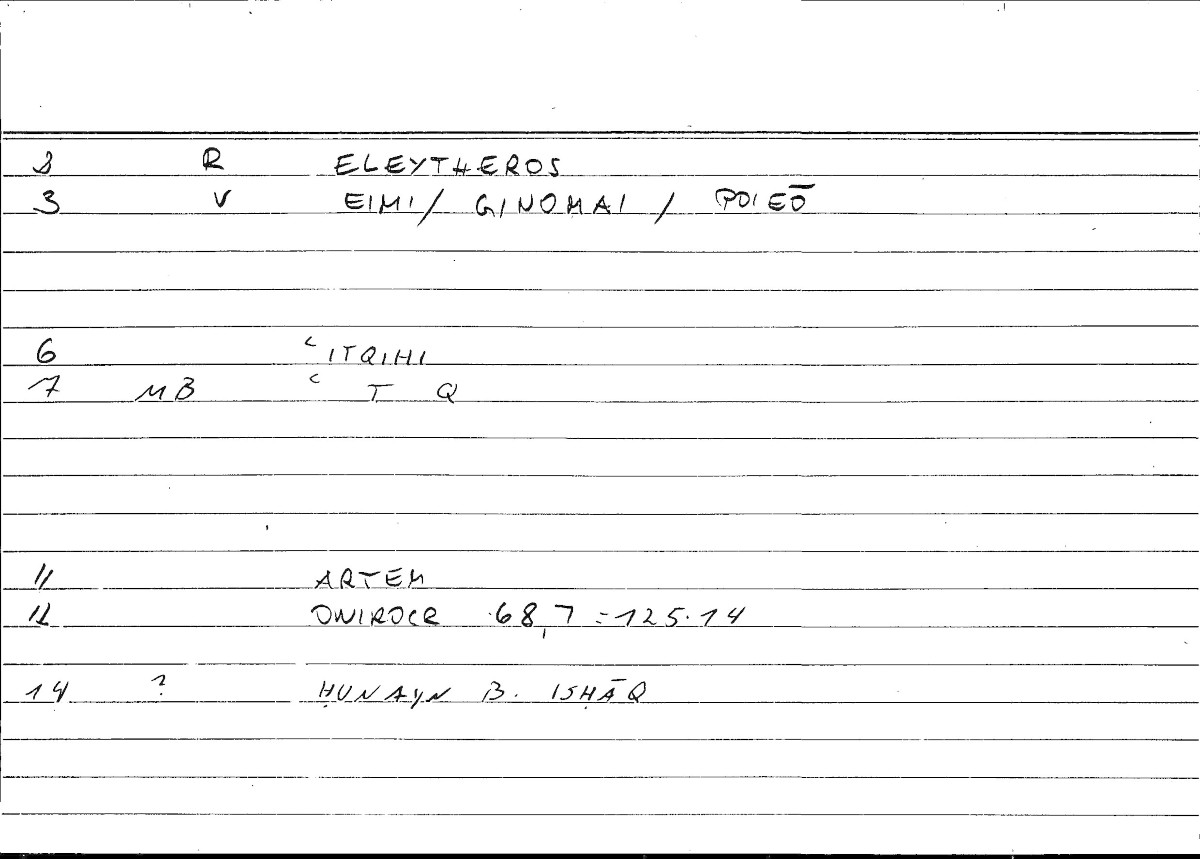 2 R ELEYTHEROS
3 V EIMI / GINOMAI / POIEŌ
6 ʿITQIHI
7 MB ʿ T Q
11 ARTEM
12 ONIROCR 68,7 = 125.14
14 ? ḤUNAYN B. ISḤĀQ